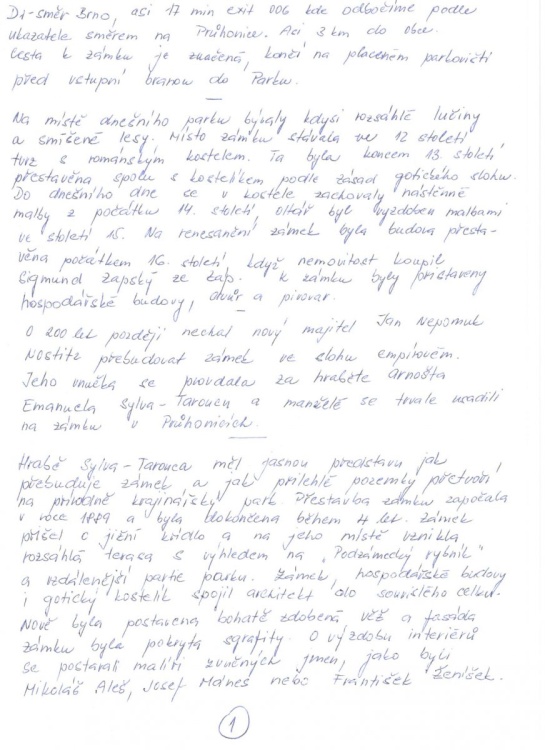 D1-směr Brno, asi 17 min exit 006 kde odbočíme podle
ukazatele směrem na Průhonice. Asi 3 km do obce.
Cesta k zámku je značená, končí na placeném parkovišti
před vstupní branou do Parku.
Na místě dnešního parku bývaly kdysi rozsáhlé lučiny
a smíšené lesy. Místo zámku stávala ve 12 století
tvrz s románským kostelem. Ta byla koncem 13. století
přestavěna spolu s kostelíkem podle zásad gotického slohu.
Do dnešního dne se v kostele zachovaly nástěnné
malby z počátku 14. století, oltář byl vyzdoben malbami
ve století 15. Na renesanční zámek byla budova přesta-
věna počátkem 16. století když nemovitost koupil
Sigmund Zapský ze Zap. K zámku byly přistaveny
hospodářské budovy, dvůr a pivovar.
O 200 let později nechal nový majitel Jan Nepomuk
Nostitz přebudovat zámek ve slohu empírovém.
Jeho vnučka se provdala za hraběte Arnošta
Emanuela Sylva-Tarouca a manželé se trvale usadili
na zámku v Průhonicích.
Hrabě Sylva-Tarouca měl jasnou představu jak
přebuduje zámek a jak přilehlé pozemky přetvoří
na přírodně krajinářský park. Přestavba zámku započala
v roce 1889 a byla dokončena během 4 let. Zámek
přišel o jižní křídlo a na jeho místě vznikla
rozsáhlá terasa s výhledem na "Podzámecký rybník"
a vzdálenější partie parku. Zámek, hospodářské budovy
i gotický kostelík spojil architekt do souvislého celku.
Nově byla postavena bohatě zdobená věž a fasáda
zámku byla pokryta sgrafity. O výzdobu interiérů
se postarali malíři zvučných jmen, jako byli
Mikoláš Aleš, Josef Mánes nebo František Ženíšek.
1